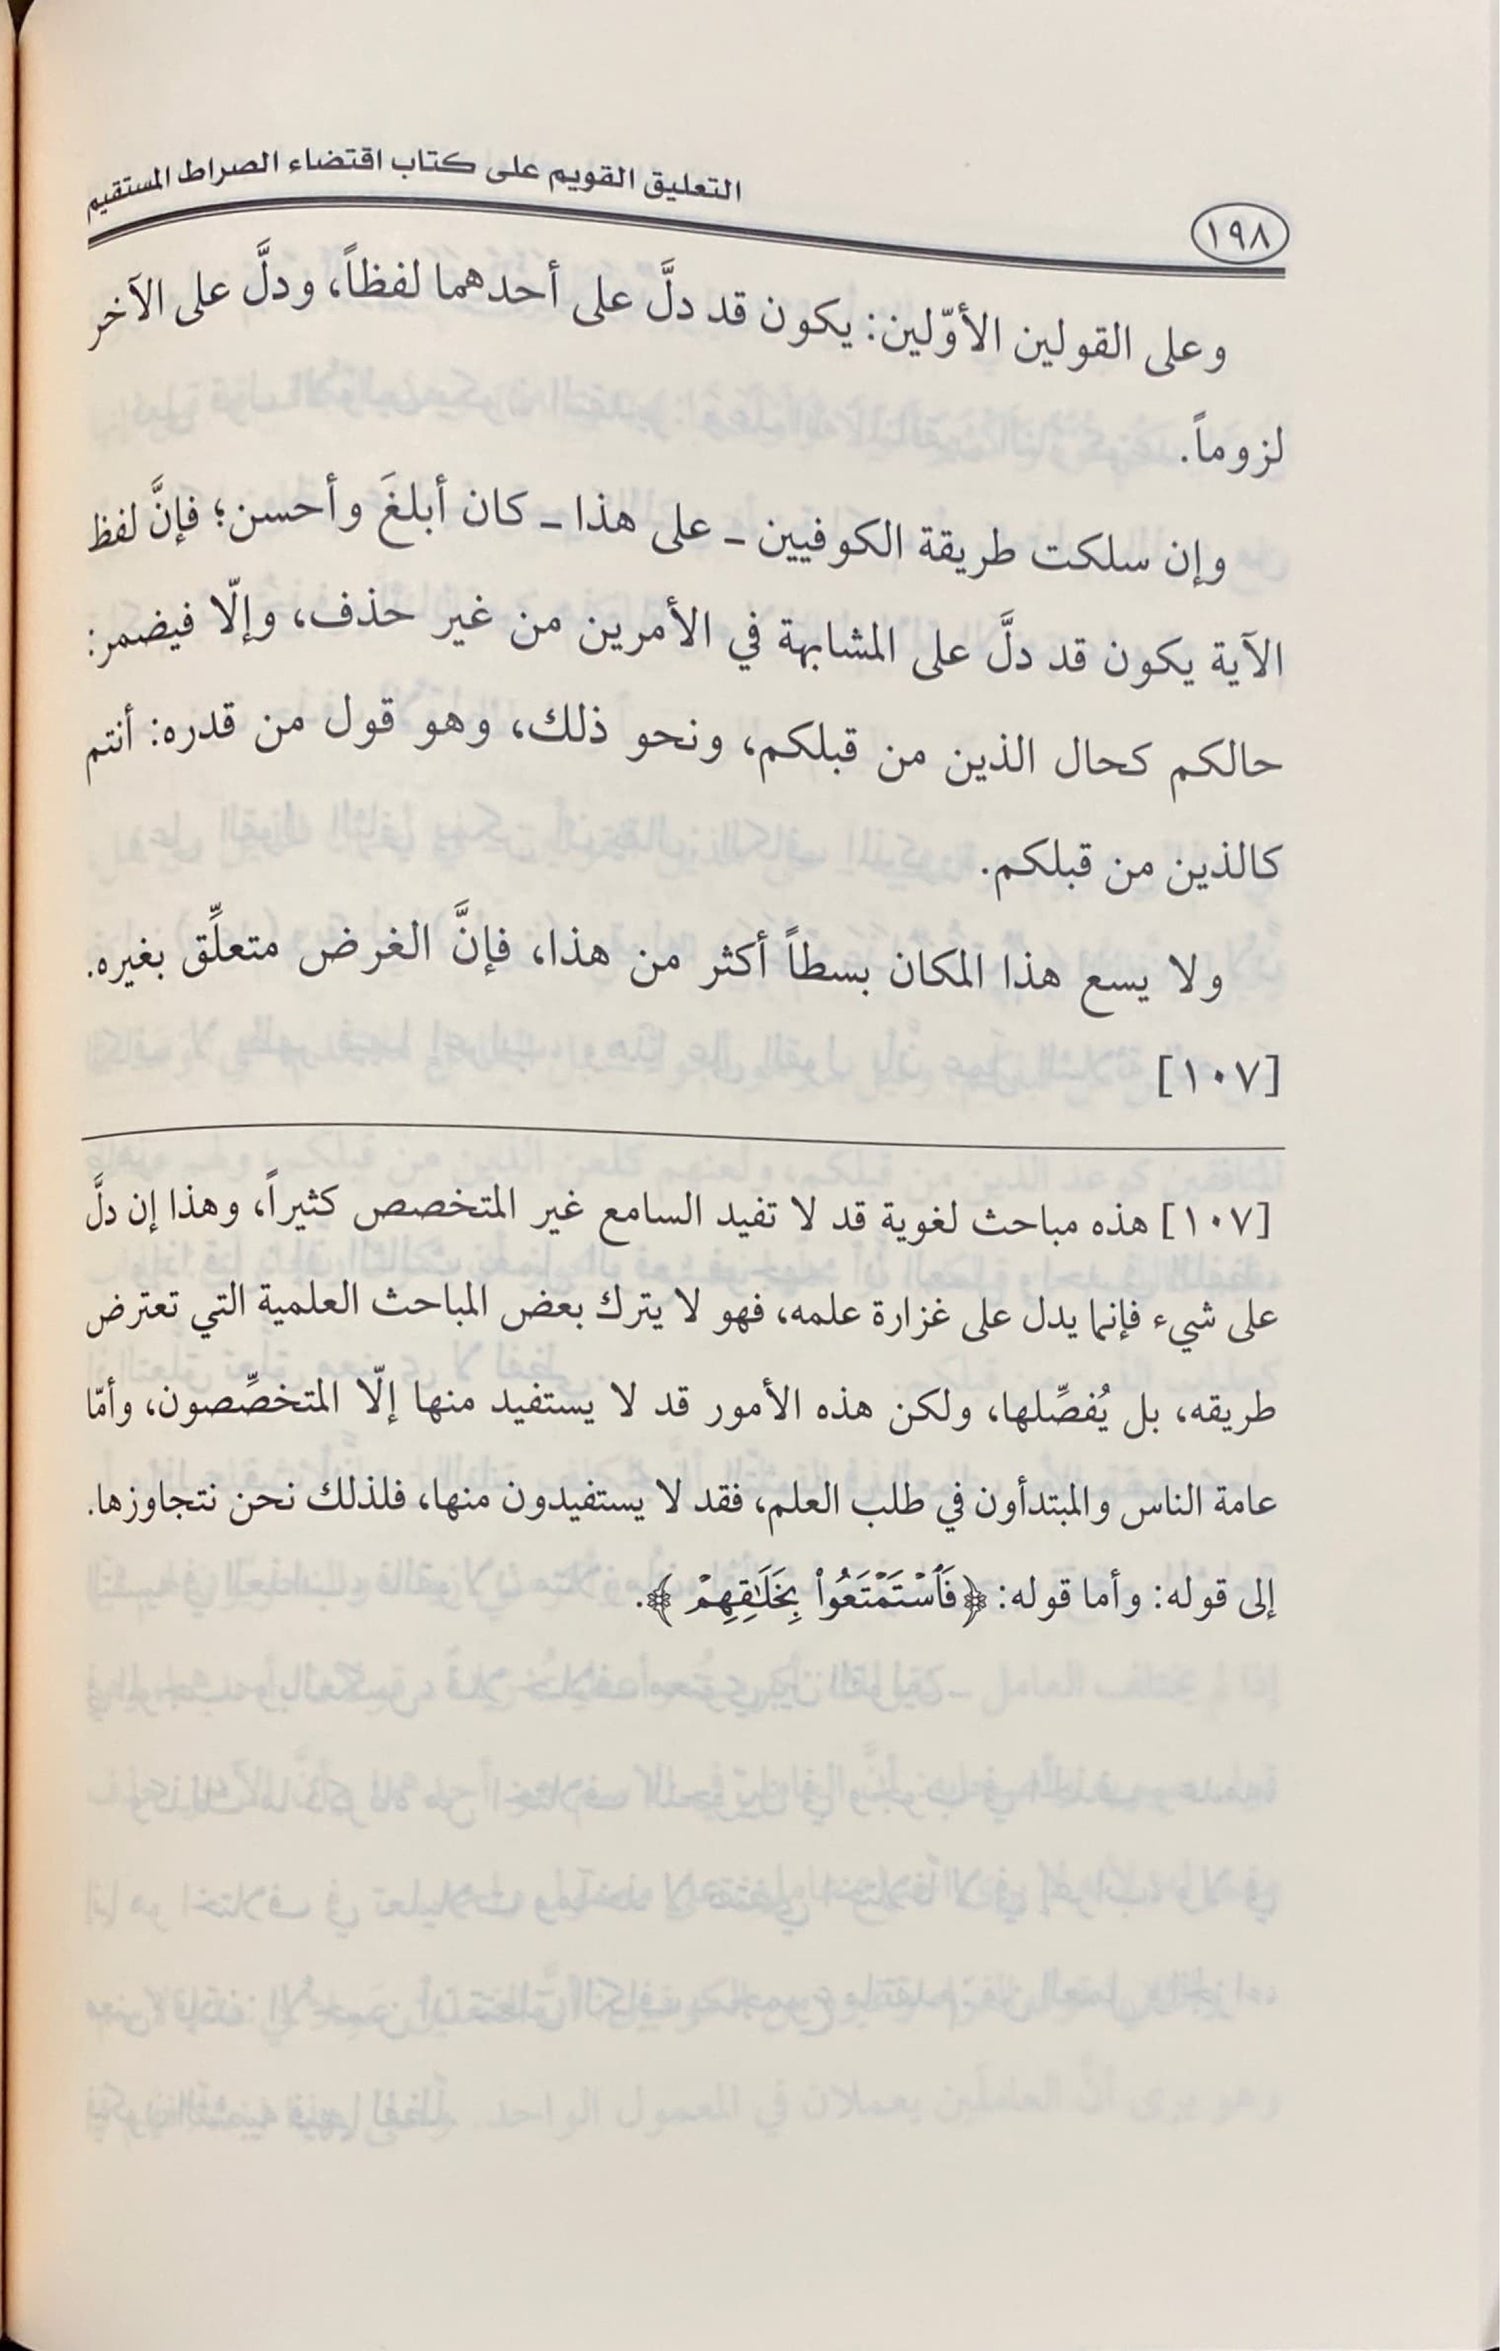 التعليق القويم على كتاب اقتضاء الصراط المستقيم
١٩٨
وعلى القولين الأوّلين: يكون قد دلَّ على أحدهما لفظاً، ودلَّ على الآخر
لزوماً.
وإن سلكت طريقة الكوفيين - على هذا - كان أبلغَ وأحسن؛ فإنَّ لفظ
الآية يكون قد دلَّ على المشابهة في الأمرين من غير حذف، وإلّا فيضمر:
حالكم كحال الذين من قبلكم، ونحو ذلك، وهو قول من قدره: أنتم
كالذين من قبلكم.
ولا يسع هذا المكان بسطاً أكثر من هذا، فإنَّ الغرض متعلِّق بغيره.
[١٠٧]
[١٠٧] هذه مباحث لغوية قد لا تفيد السامع غير المتخصص كثيراً، وهذا إن دلَّ
على شيء فإنما يدل على غزارة علمه، فهو لا يترك بعض المباحث العلمية التي تعترض
طريقه، بل يُفصِّلها، ولكن هذه الأمور قد لا يستفيد منها إلّا المتخصِّصون، وأمّا
عامة الناس والمبتدأون في طلب العلم، فقد لا يستفيدون منها، فلذلك نحن نتجاوزها.
إلى قوله: وأما قوله: ﴿فَٱسۡتَمۡتَعُواْ بِخَلَٰقِهِمۡ﴾.